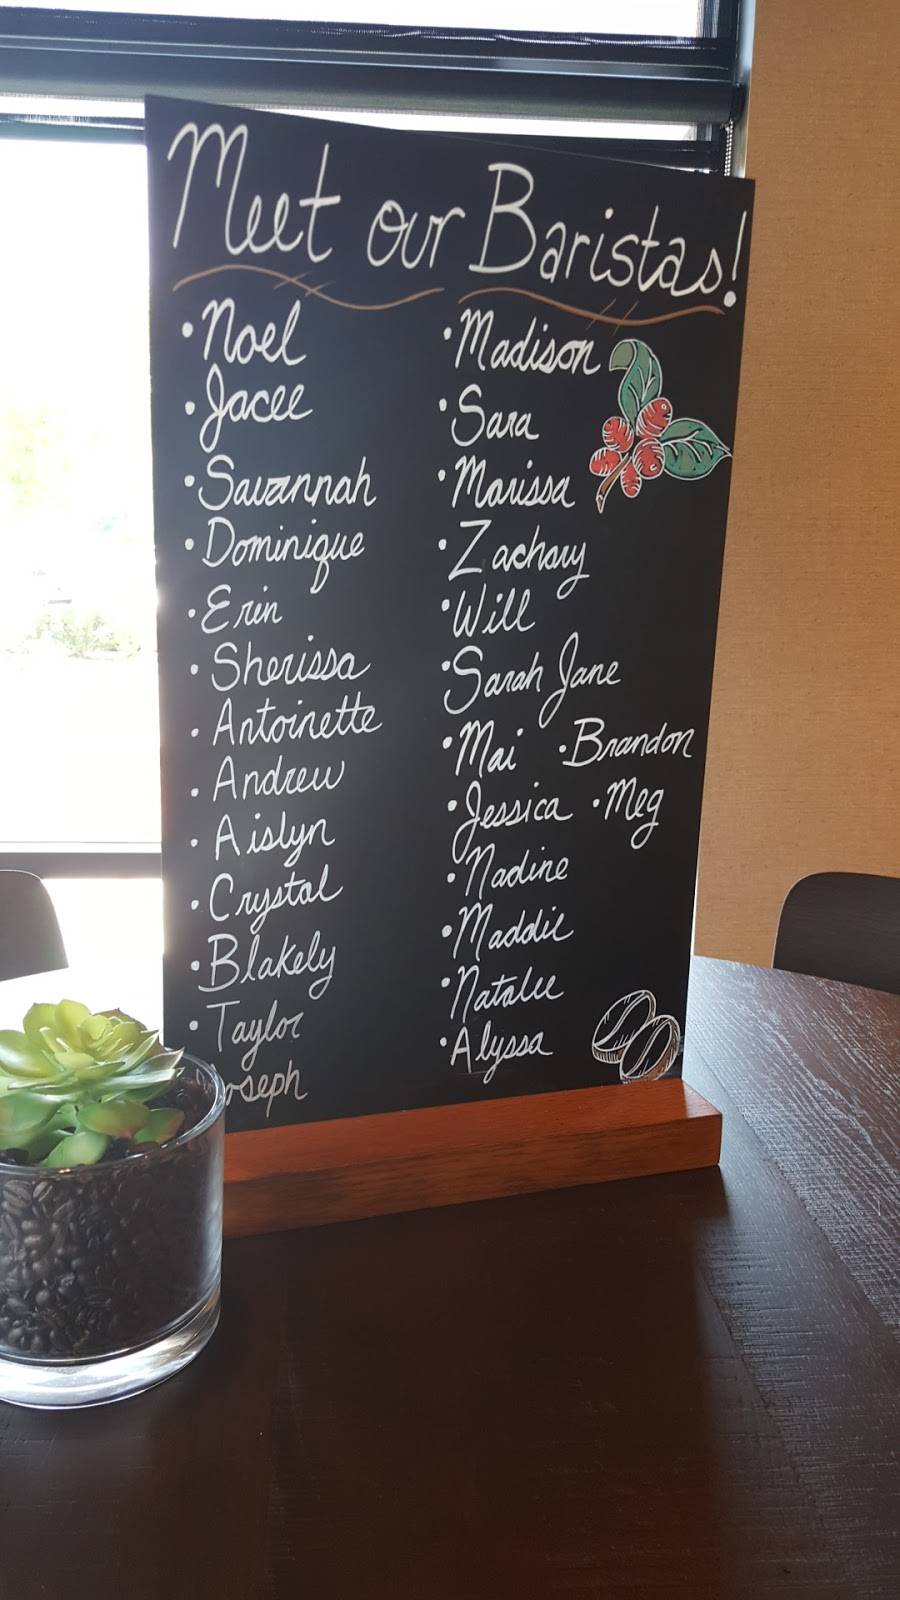 Meet our Baristas!
• Noel
• Jacee
• Savannah
• Dominique
• Erin
• Sherissa
• Antoinette
• Andrew
• Aislyn
• Crystal
• Blakely
• Taylor
oseph
• Madison
• Sara
• Marissa
• Zachary
• Will
• Sarah Jane
• Mai • Brandon
• Jessica • Meg
• Nadine
• Maddie
• Natalee
• Alyssa